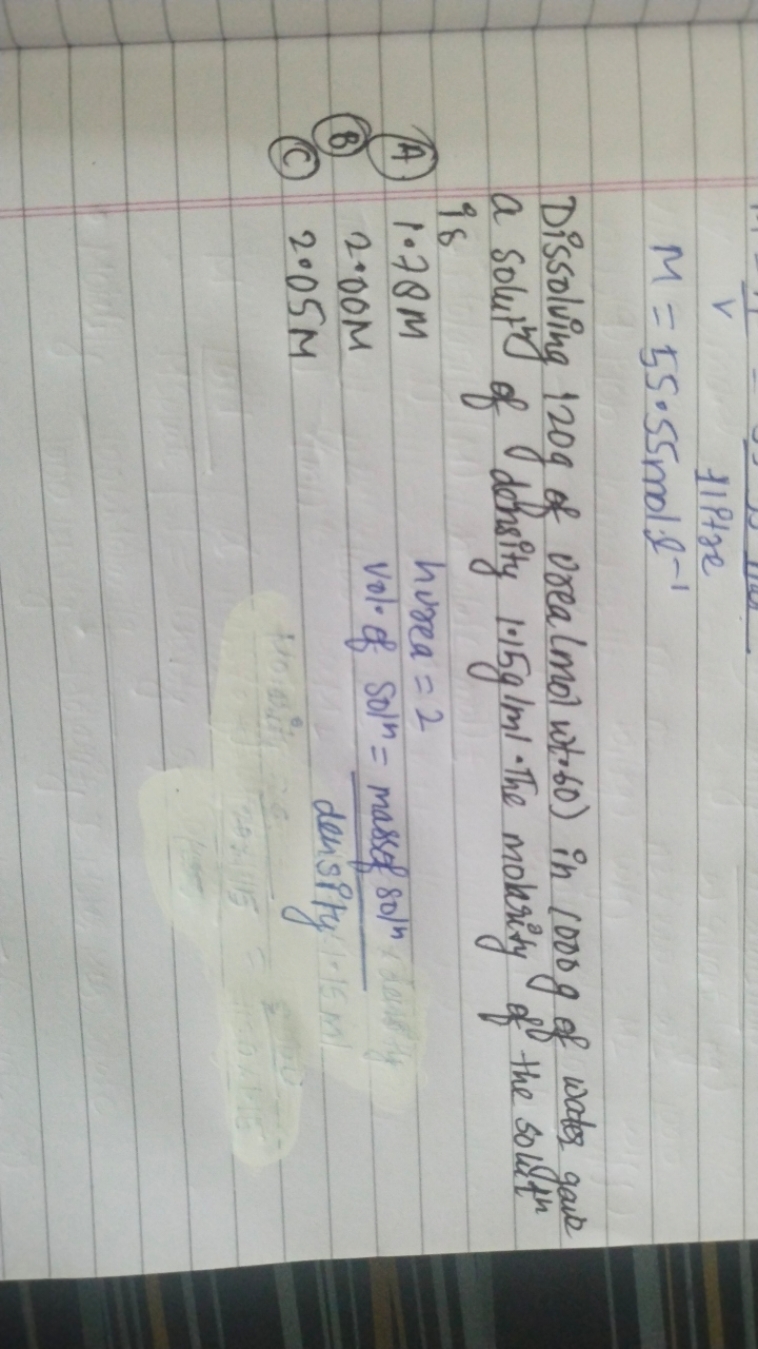 1litre
v
M = 55.55mol.l⁻¹
Dissolving 120g of urea (mol wt.60) in 1000g of water gave
a soluti of density 1.15g/ml. The molarity of the soluth
is
(A) 1.78M
(B) 2.00M
(C) 2.05M
nurea = 2
vol. of solⁿ = mass of solⁿ
density 1.15ml